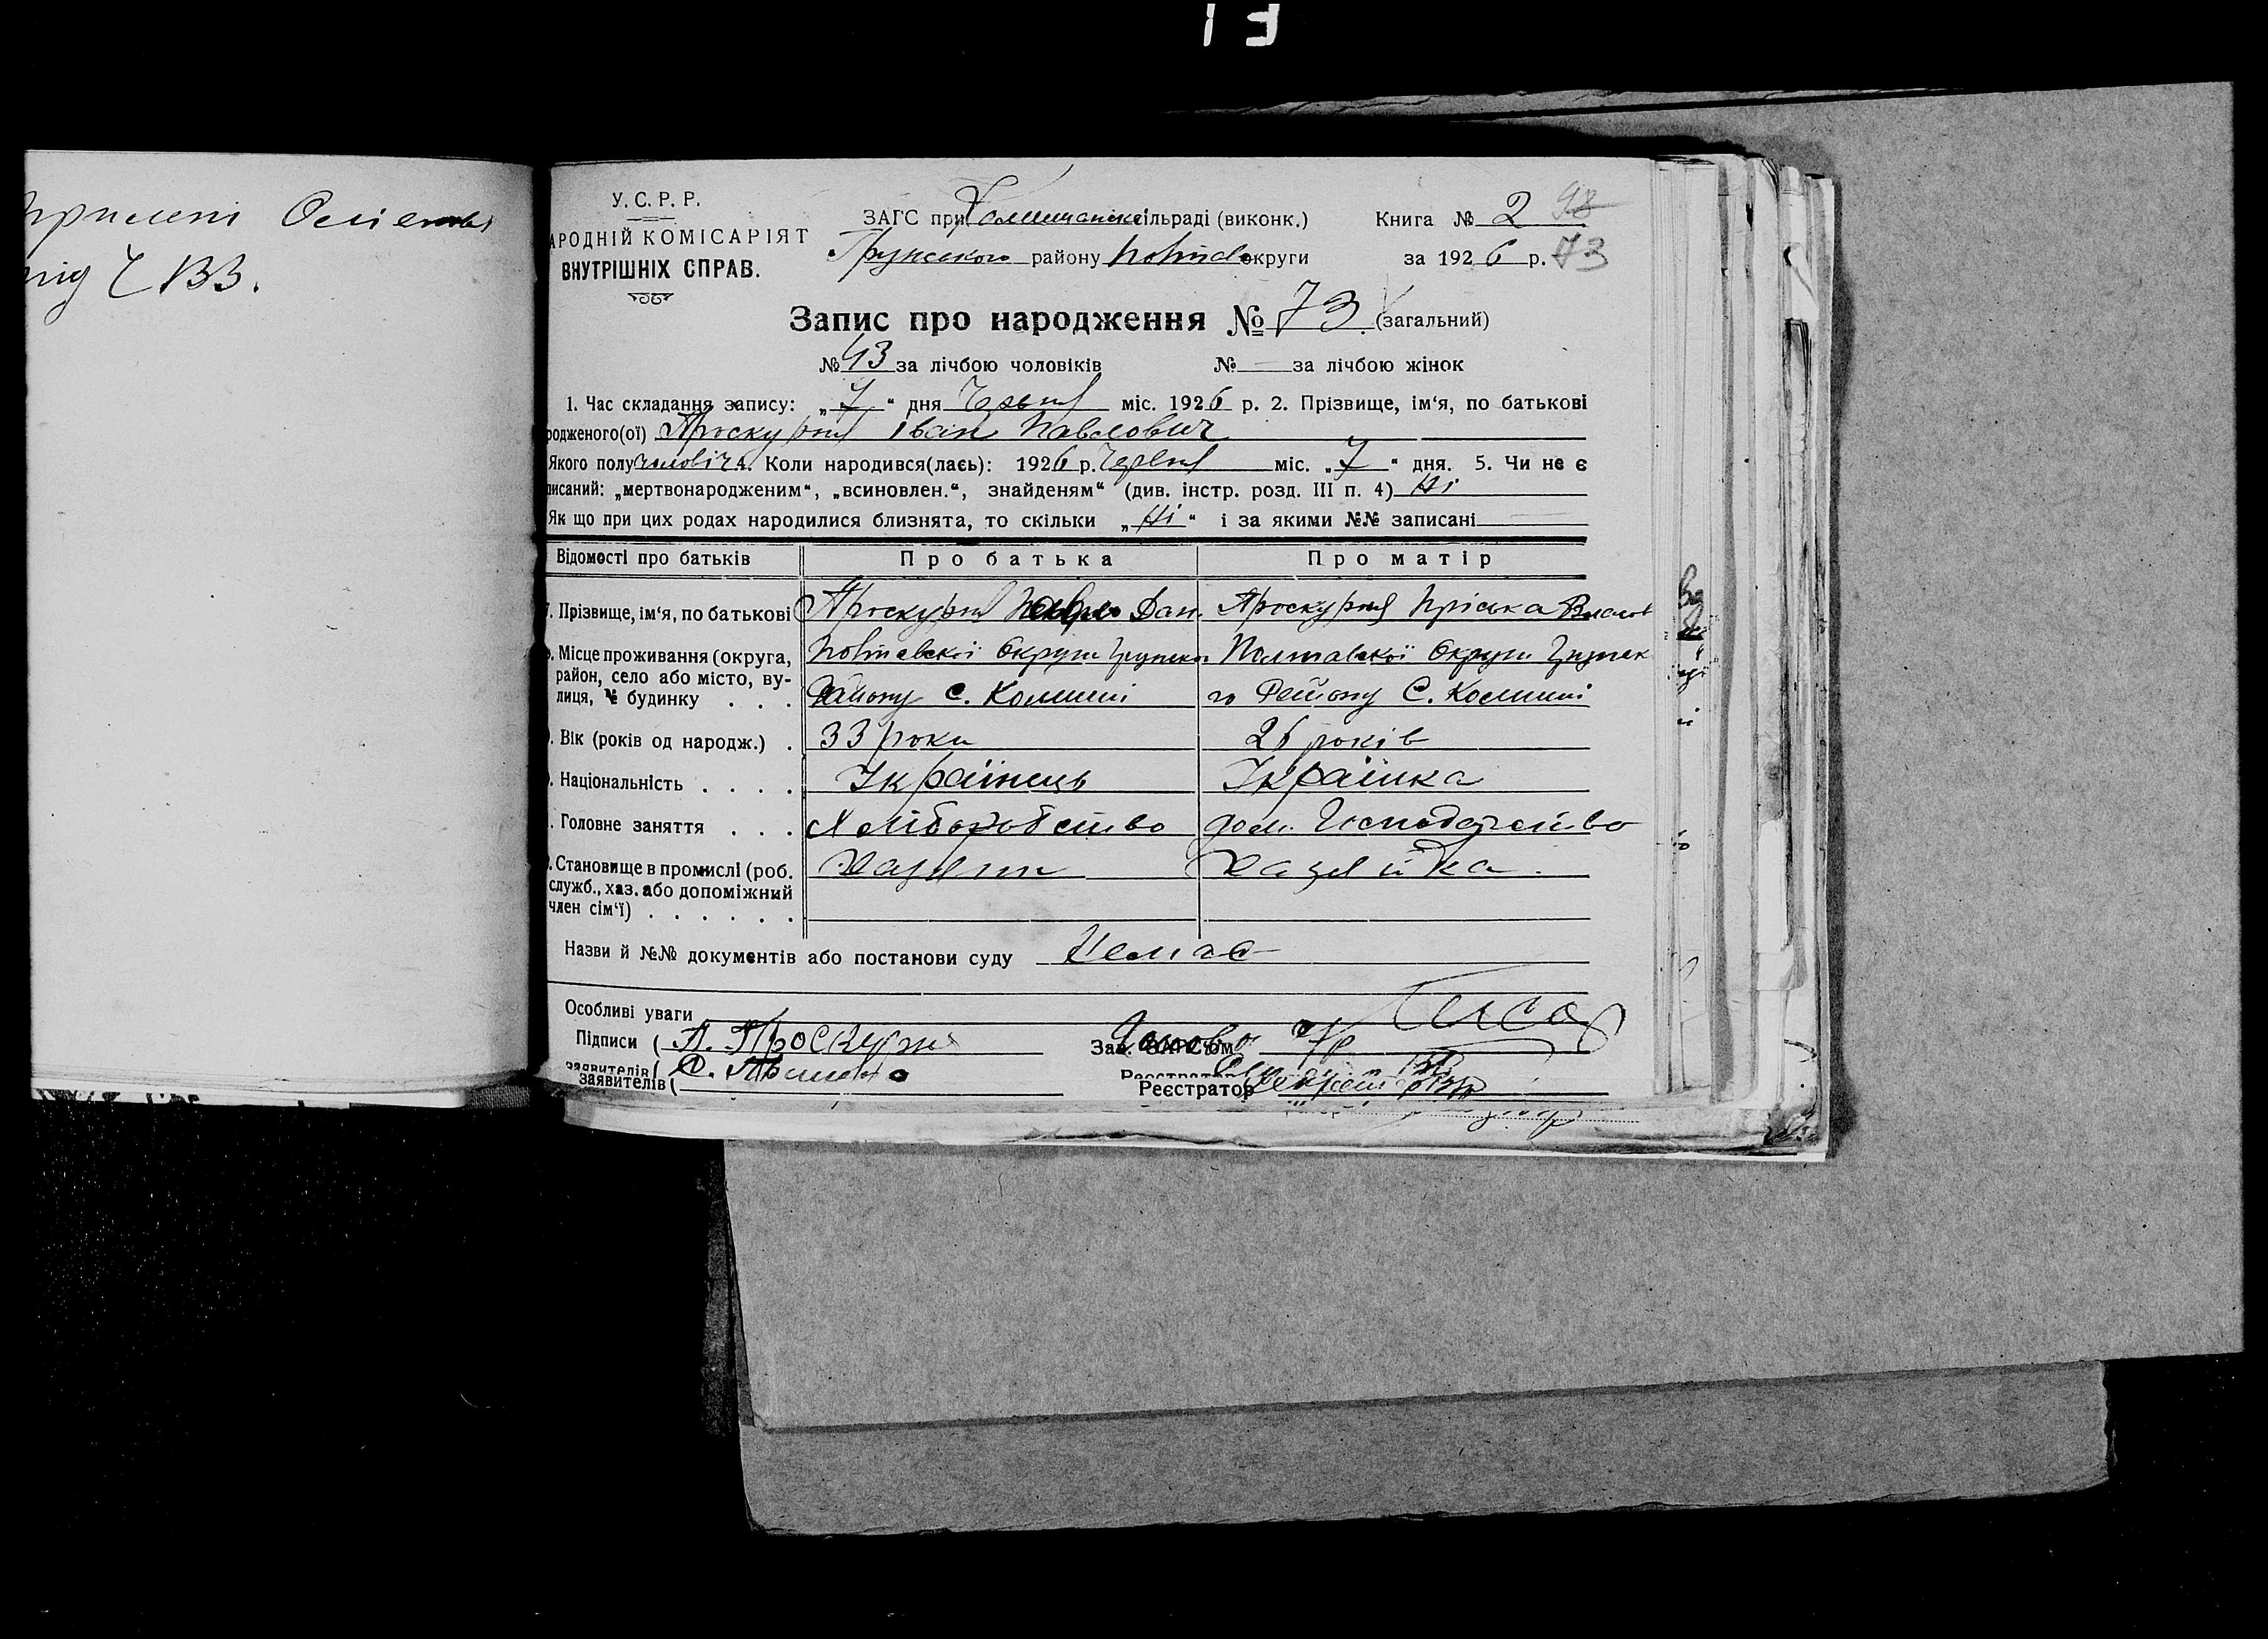 13
Осіпет
під Ч 133.
У. С. Р. Р.
АРОДНІЙ КОМІСАРІЯТ
ВНУТРІШНІХ СПРАВ.
ЗАГС при сільраді (виконк.)
Грунського району Полтав округи
Книга № 2 98
за 1926 р. 73
Запис про народження № 73. (загальний)
№ 43 за лічбою чоловіків № — за лічбою жінок
1. Час складання запису: „7“ дня Червня міс. 1926 р. 2. Прізвище, ім‘я, по батькові
родженого(ої) Проскурня Іван Павлович
Якого полу чоловіч 4. Коли народився(лась): 1926 р. Червня міс. „7“ дня. 5. Чи не є
писаний: „мертвонародженим“, „всиновлен.“, знайденям“ (див. інстр. розд. III п. 4) Ні
Як що при цих родах народилися близнята, то скільки „Ні“ і за якими №№ записані —
Відомості про батьків Про батька Про матір
7. Прізвище, ім‘я, по батькові Проскурня Павло Дан. Проскурня Пріська Власов
Місце проживання (округа, Полтавської Округи Грунськ Полтавської Округи Грунськ
район, село або місто, ву-
лиця, № будинку . . . Району С. Колишні го Району С. Колишні
. Вік (років од народж.) . 33 роки 26 років
. Національність . . . . Українець Українка
. Головне заняття . . . Хліборобство дом. Господарство
. Становище в промислі (роб. Хазяїн Хазяйка.
служб., хаз. або допоміжний
член сім‘ї) . . . . . .
Назви й №№ документів або постанови суду Немає
Особливі уваги
Підписи ( П. Проскурня Зав. ЗАГС‘ом Голова
заявителів (
заявителів ( Реєстратор